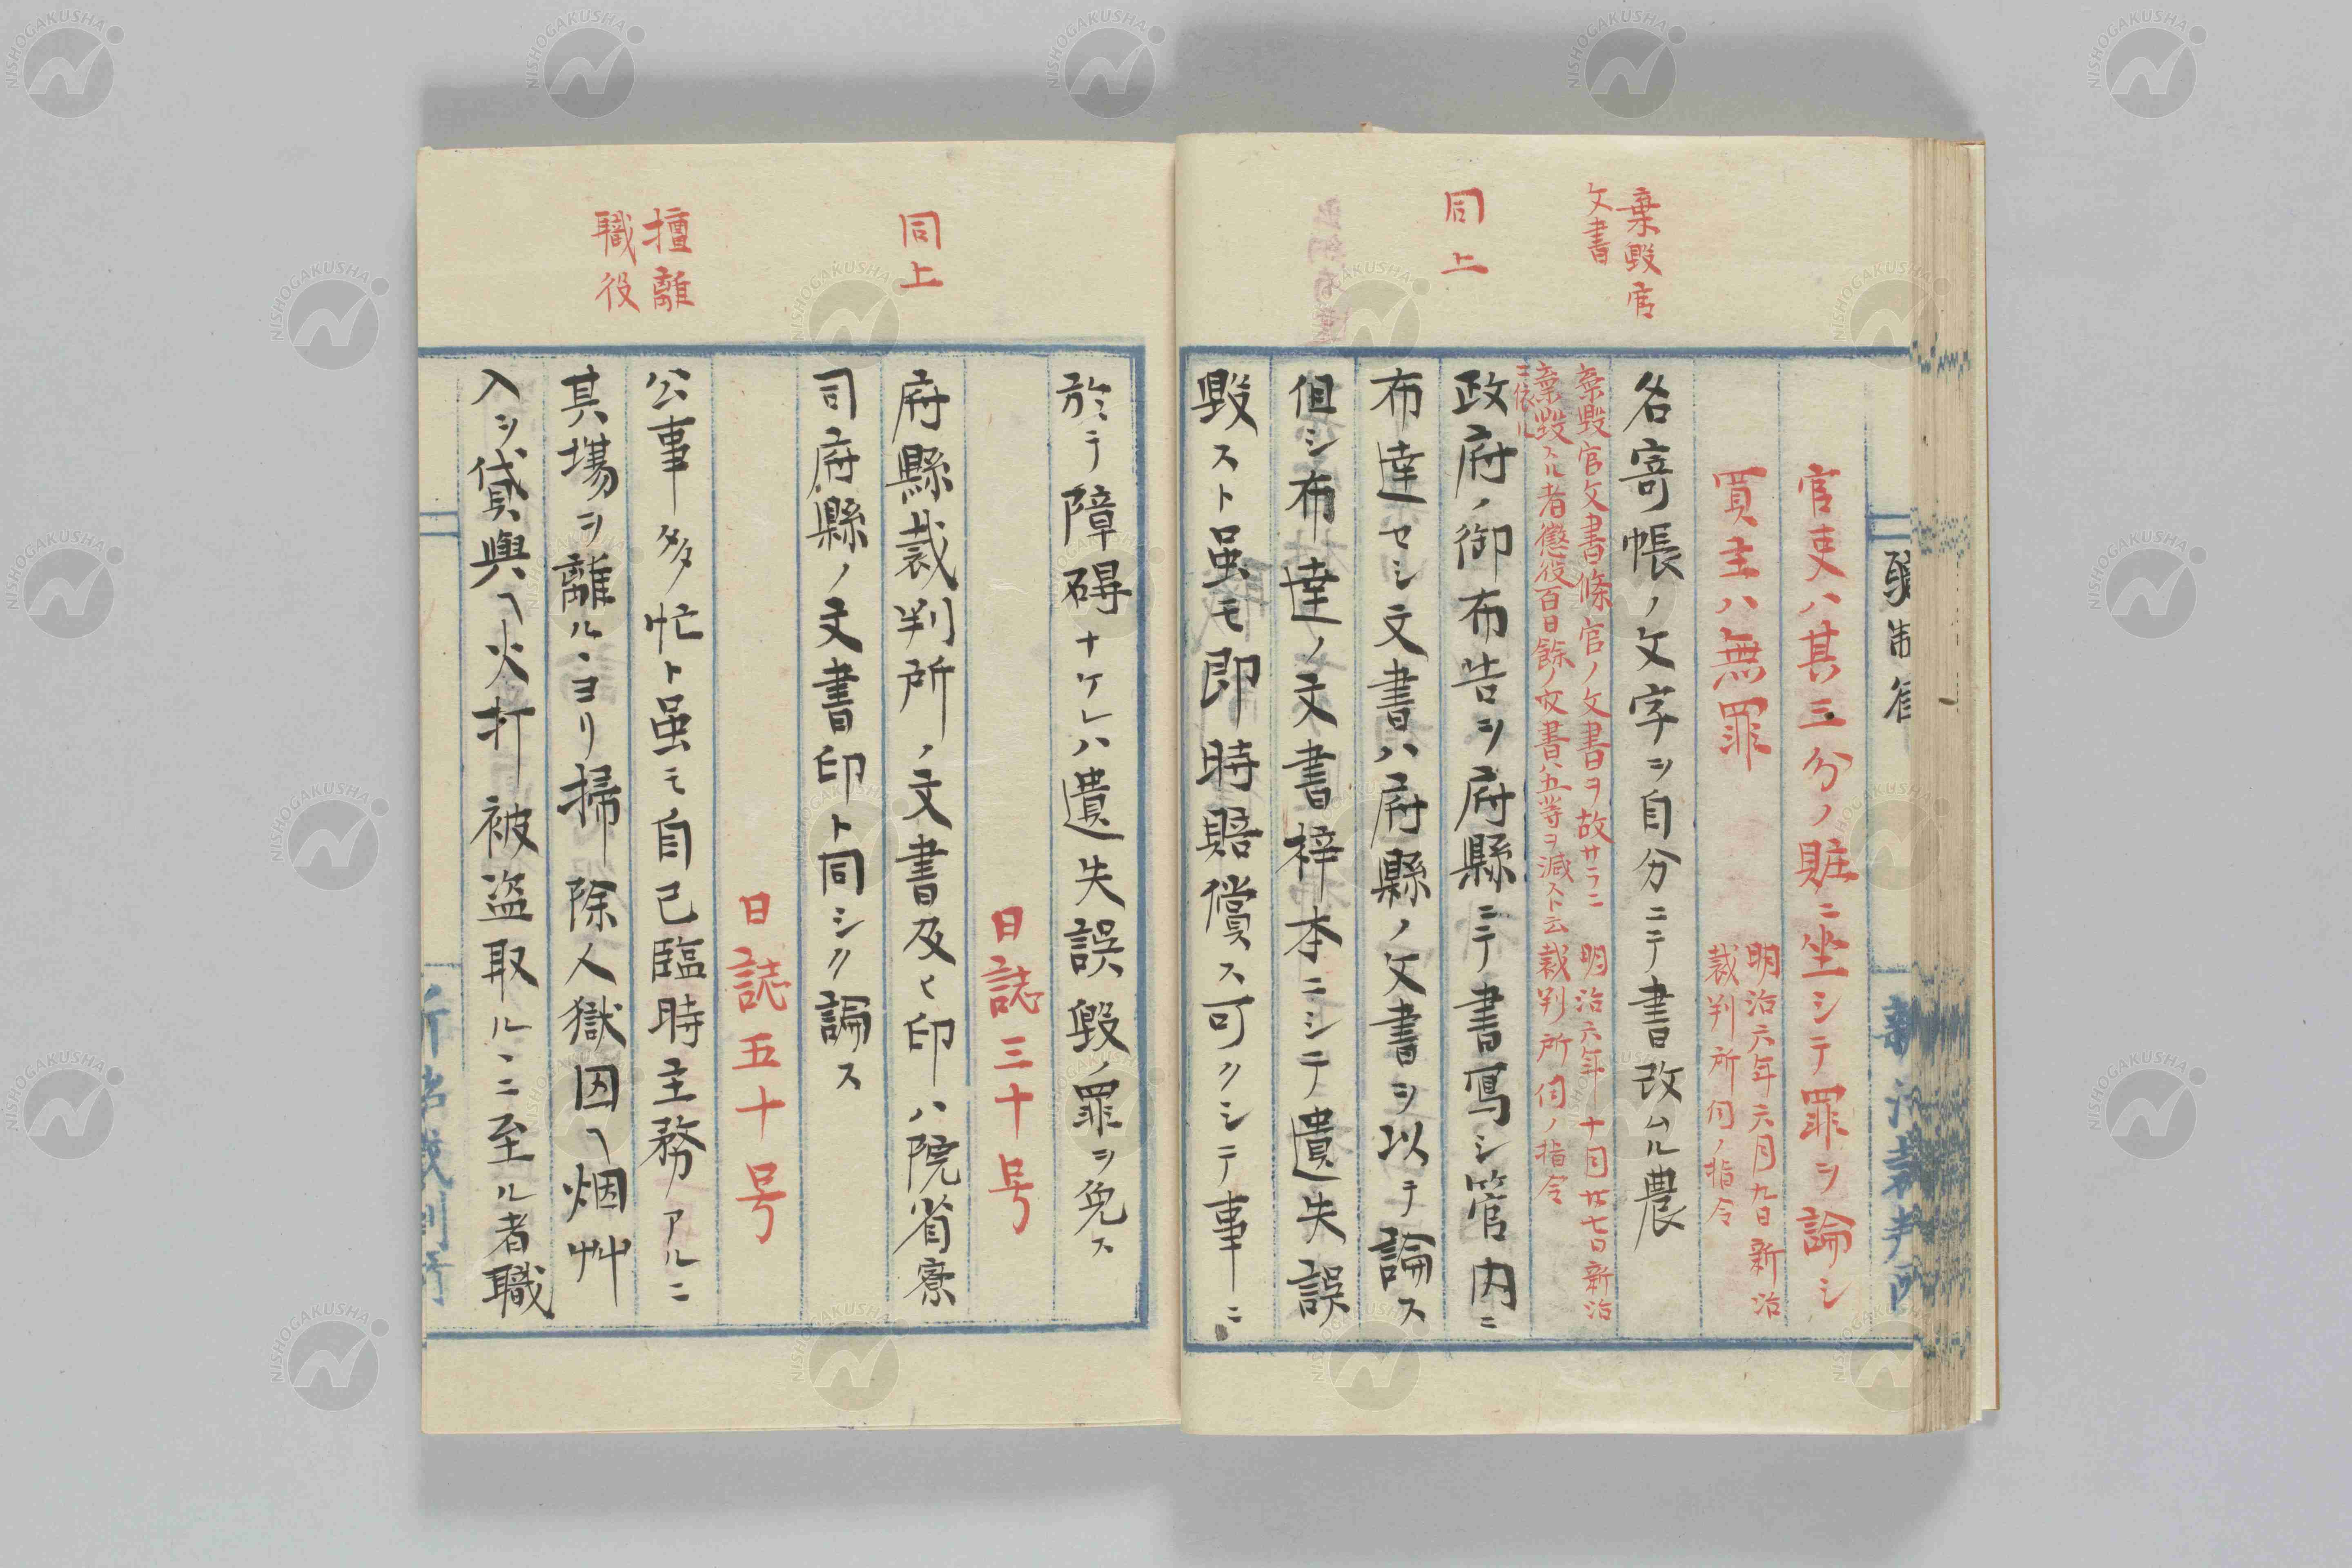 職制律
官吏ハ其三分ノ賍ニ坐シテ罪ヲ論シ
買主ハ無罪
明治六年六月九日新治
裁判所伺ノ指令
棄毀官
文書
名寄帳ノ文字ヲ自分ニテ書改ムル農
棄毀官文書條官ノ文書ヲ故サラニ
棄毀スル者懲役百日餘ノ文書ハ五等ヲ減スト云
ニ依ル
明治六年十月廿七日新治
裁判所伺ノ指令
同上
政府ノ御布告ヲ府縣ニテ書寫シ管内ニ
布達セシ文書ハ府縣ノ文書ヲ以テ論ス
但シ布達ノ文書梓本ニシテ遺失誤
毀スト虽モ即時賠償ス可クシテ事ニ
於テ障碍ナケレハ遺失誤毀ノ罪ヲ免ス
日誌三十号
同上
府縣裁判所ノ文書及ヒ印ハ院省寮
司府縣ノ文書印ト同シク論ス
日誌五十号
擅離
職役
公事多忙ト虽モ自己臨時主務アルニ
其場ヲ離ルヽヨリ掃除人獄囚ヘ烟艸
入ヲ貸與ヘ火打被盜取ルヽニ至ル者職
新治裁判所